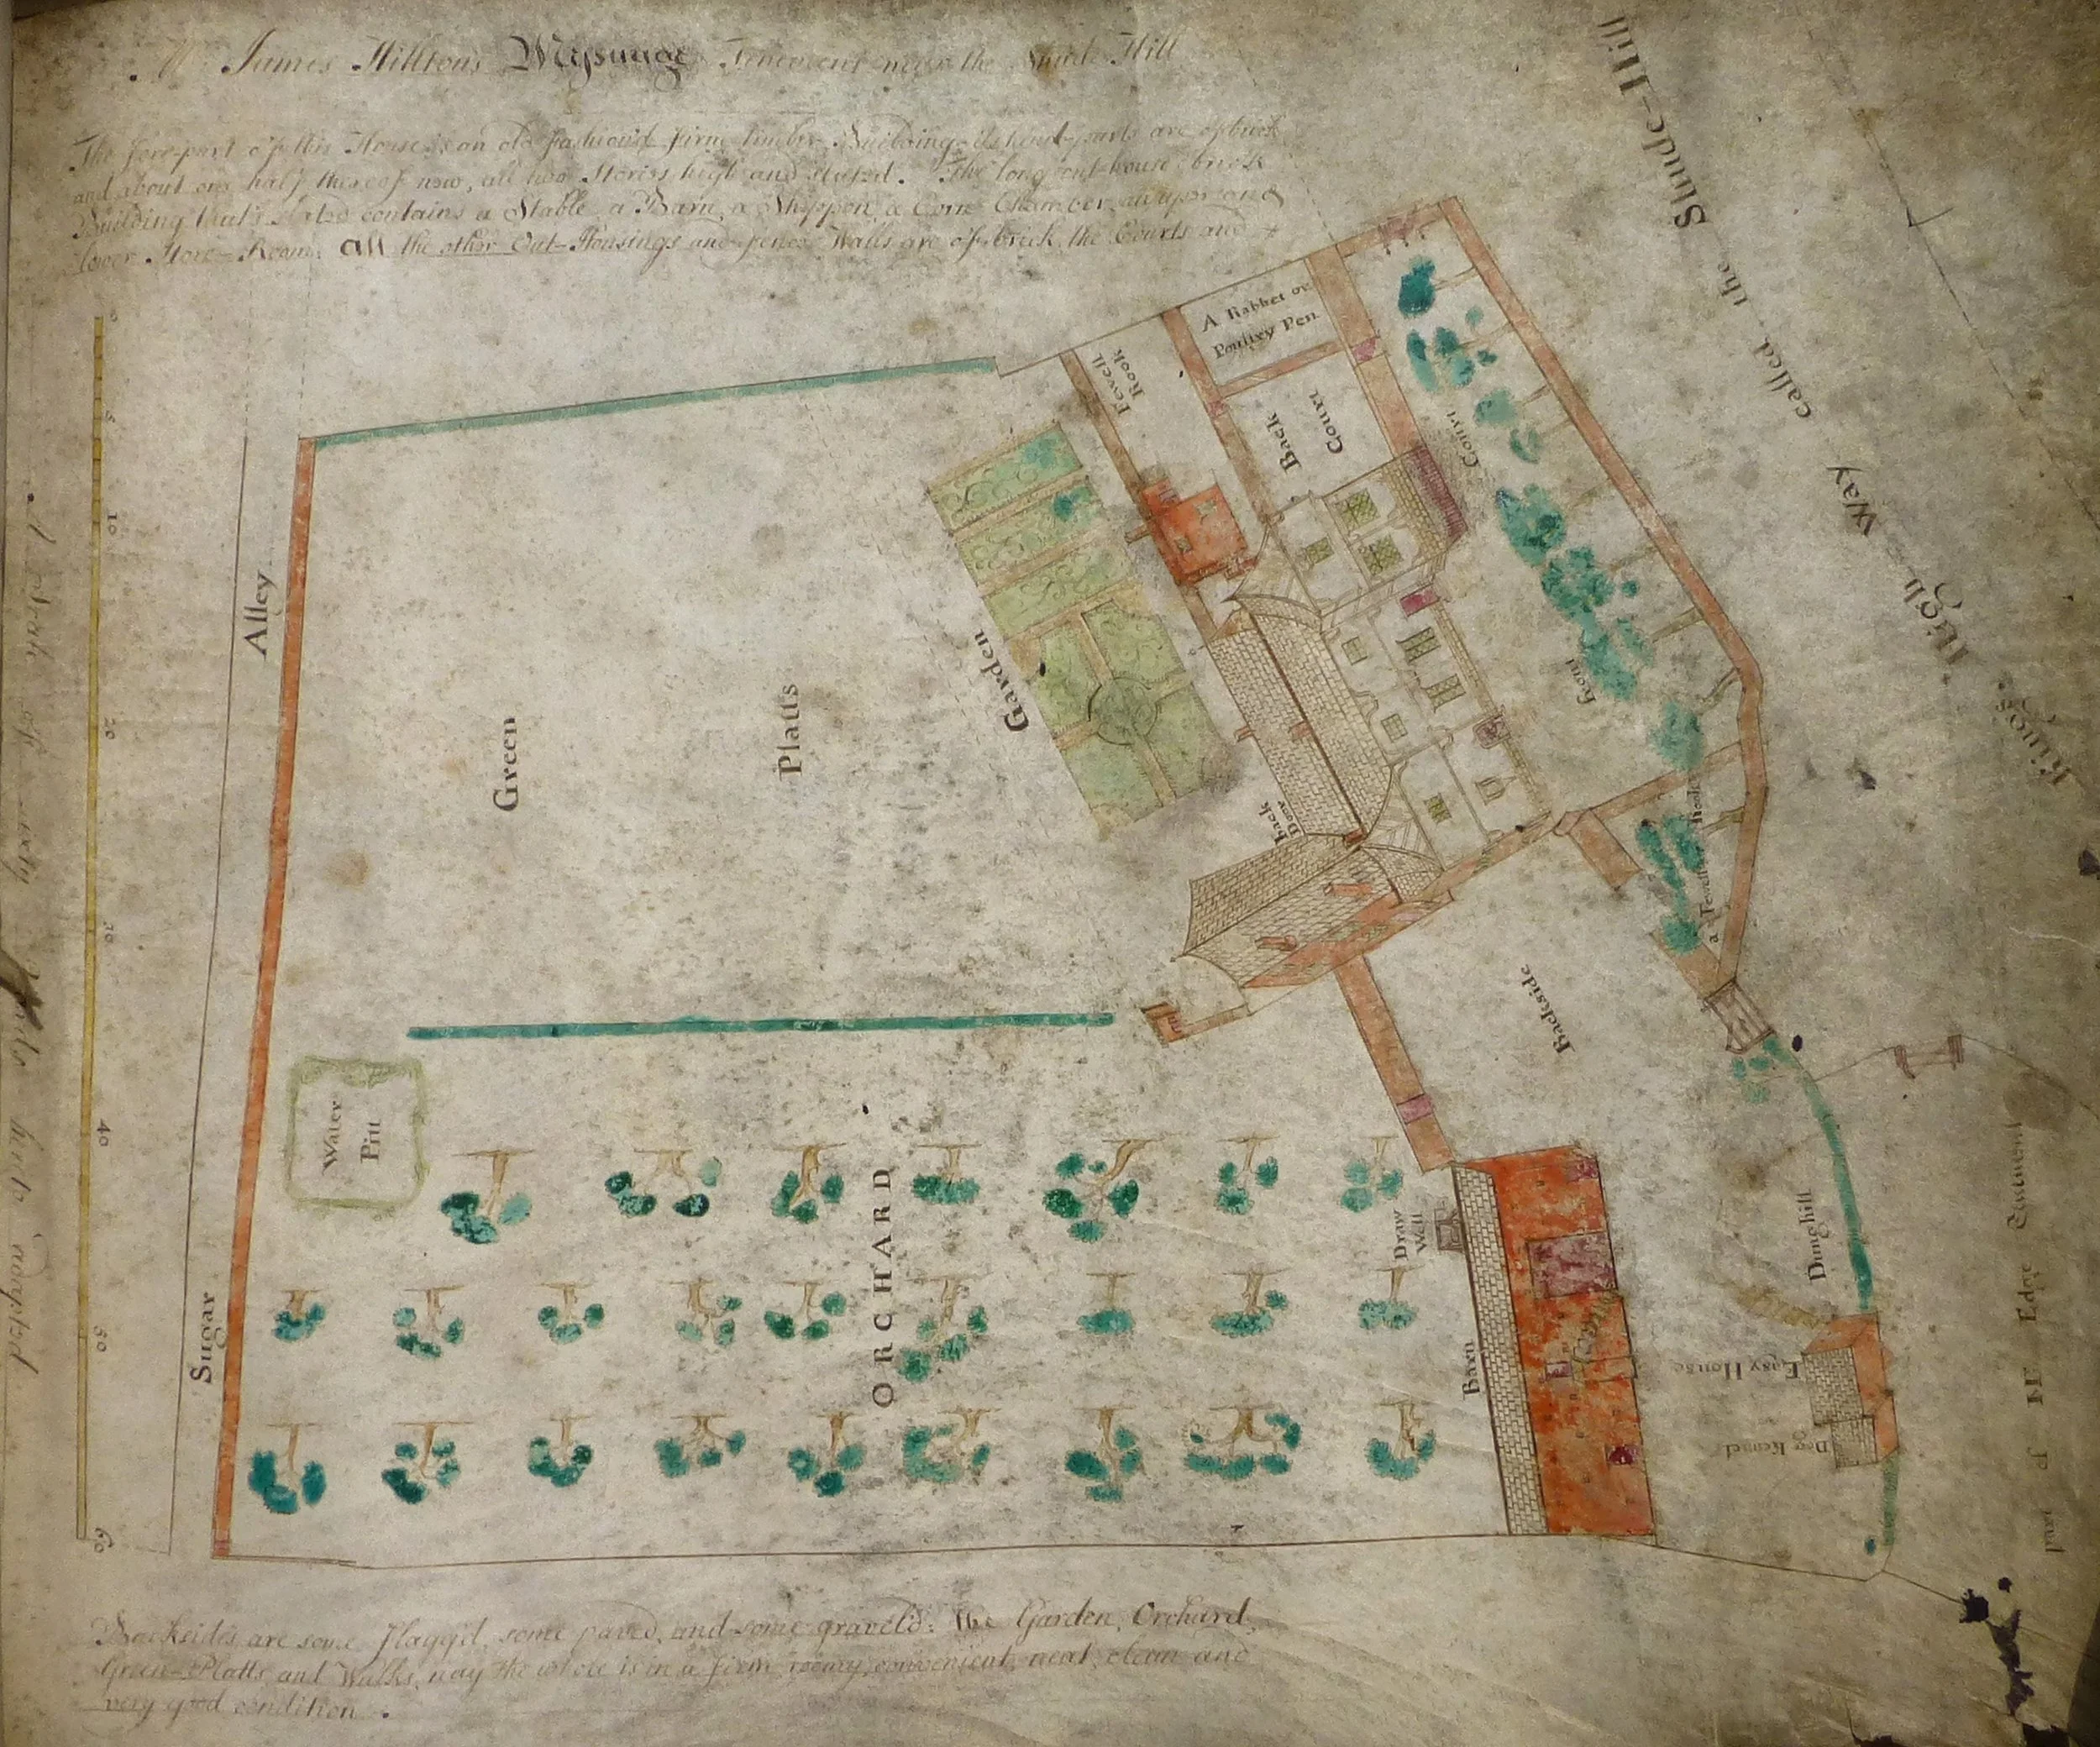 Mr James Hilltons Messuage Tenement near the Shude Hill
The fore-part of this House is an old fashion'd firm timber Building its hind-parts are of brick
and about one half thereof new, all two Stories high and slated. The long out-house brick
Building that's slated contains a Stable, a Barn, a Shippon, a Corn Chamber, an upper and
lower Store-Room: all the other Out-Housings and fence Walls are of brick, the Courts and
Backsides are some Flagg'd, some paved, and some gravel'd: the Garden, Orchard,
Green-Platts, and Walks, nay the whole is in a firm, roomy, convenient, neat, clean and
very good condition.
A Scale of sixty Yards hereto adapted
0
5
10
20
30
40
50
60
Sugar
Alley
Green
Platts
Garden
Fewell
Rook
A Rabbet or
Poultry Pen
Back
Court
Court
Front
back
Door
a Fewell Rook
Backside
Water
Pitt
ORCHARD
Draw
Well
Barn
Dunghill
Easy House
Dog Kennel
Kings High Way called the Shude-Hill
part of Edge Tenement